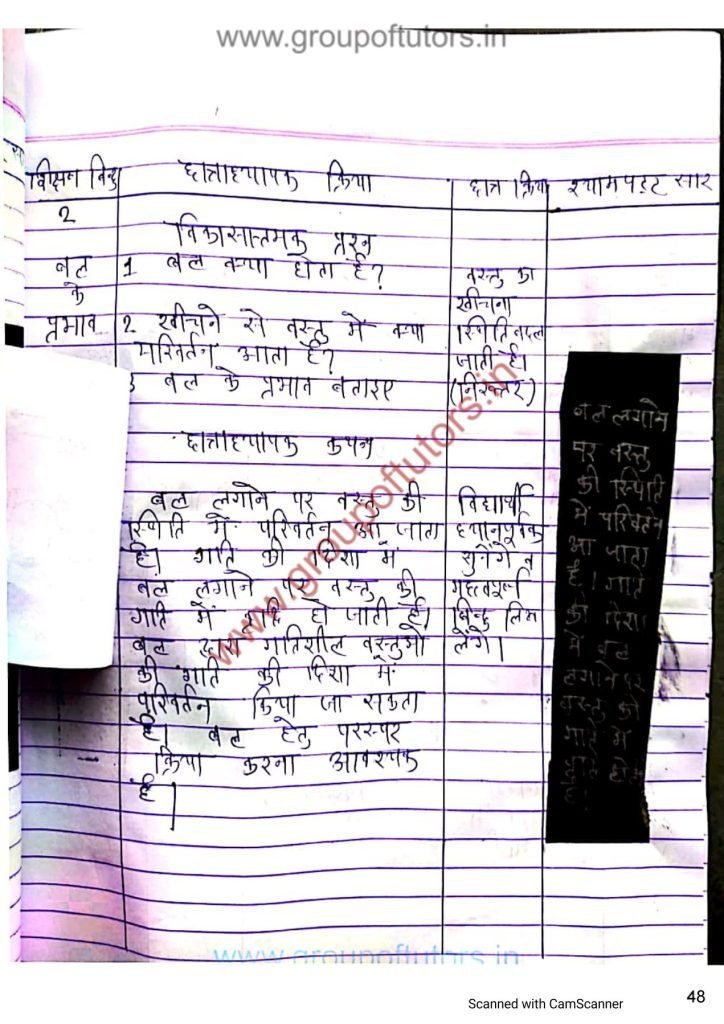 www.groupoftutors.in
शिक्षण बिन्दु
छात्राध्यापक क्रिया
छात्र क्रिया
श्यामपट्ट सार
2
बल
के
प्रभाव
विकासात्मक प्रश्न
1 बल क्या होता है?
2 खीचने से वस्तु में क्या
परिवर्तन आता है?
3 बल के प्रभाव बताइए
छात्राध्यापक कथन
बल लगाने पर वस्तु की
स्थिति में परिवर्तन आ जाता
है। गति की दिशा में
बल लगाने से वस्तु की
गति में वृद्धि हो जाती है।
बल द्वारा गतिशील वस्तुओ
की गति की दिशा में
परिवर्तन किया जा सकता
है। बल हेतु परस्पर
क्रिया करना आवश्यक
है।
वस्तु का
खीचना
स्थिति बदल
जाती है।
(निरुत्तर)
विद्यार्थी
ध्यानपूर्वक
सुनेंगे व
महत्वपूर्ण
बिन्दु लिख
लेंगे।
बल लगाने
पर वस्तु
की स्थिति
में परिवर्तन
आ जाता
है। गति
की दिशा
में बल
लगाने पर
वस्तु की
गति में
www.groupoftutors.in
www.groupoftutors.in
Scanned with CamScanner
48